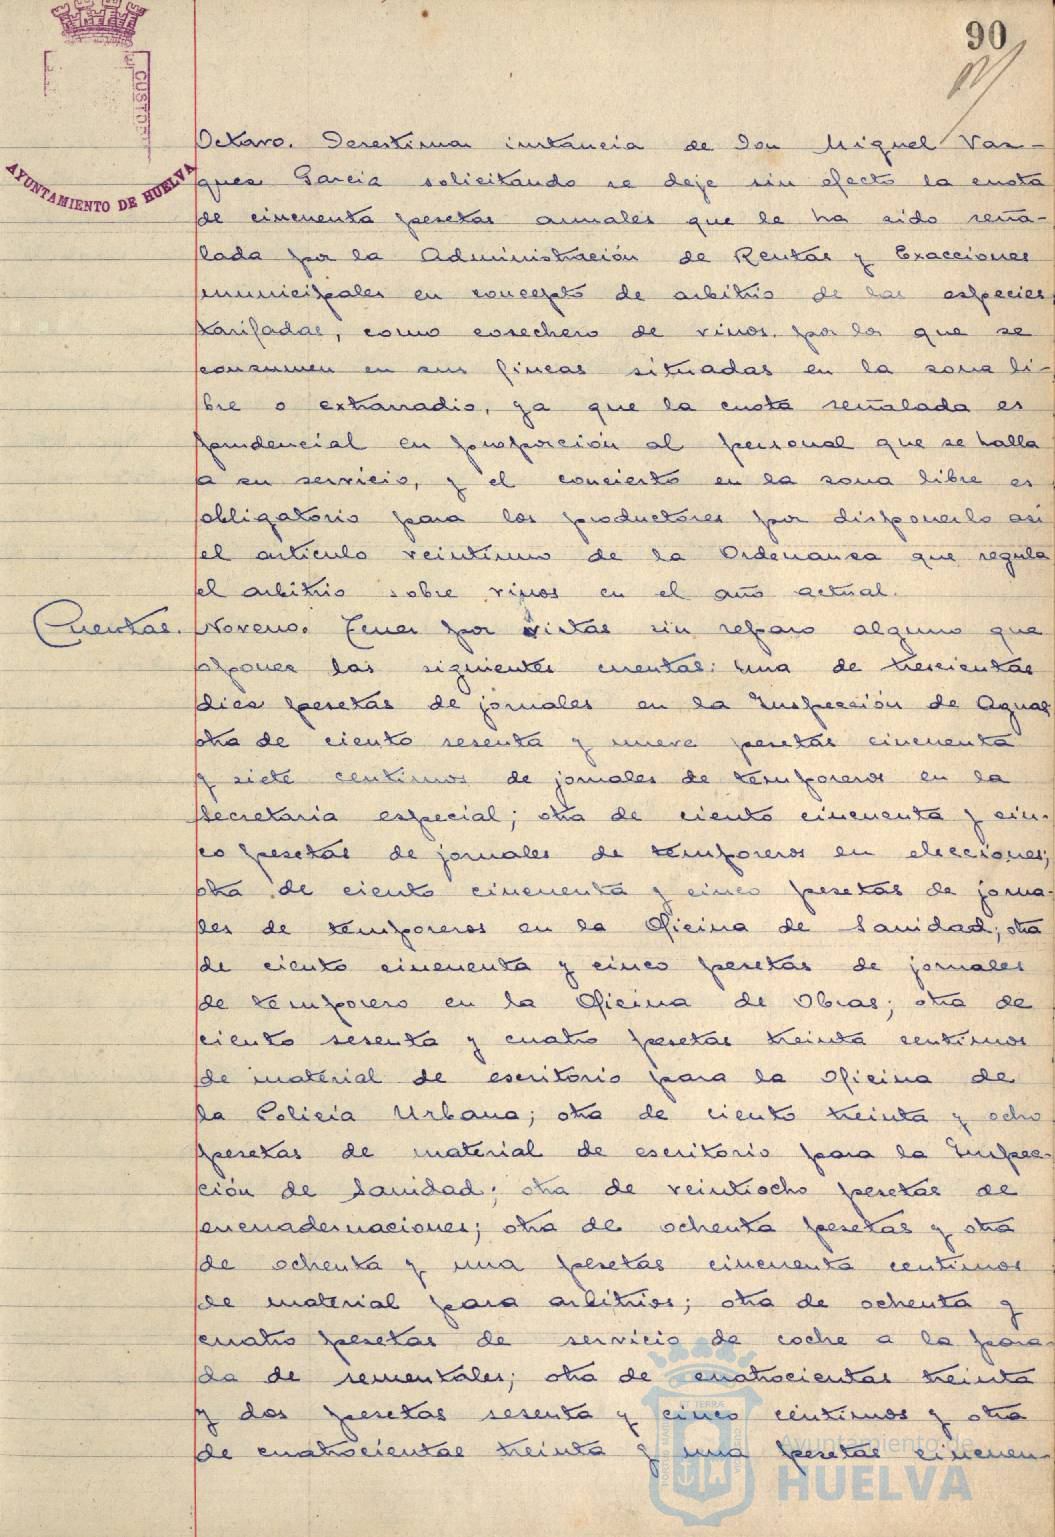 90
CUSTOD
AYUNTAMIENTO DE HUELVA
Octavo. Desestimar instancia de Don Miguel Vaz-
quez Garcia solicitando se deje sin efecto la cuota
de cincuenta pesetas anuales que le ha sido seña-
lada por la Administración de Rentas y Exacciones
municipales en concepto de arbitrio de las especies
tarifadas, como cosechero de vinos, por los que se
consumen en sus fincas situadas en la zona li-
bre o extrarradio, ya que la cuota señalada es
prudencial en proporción al personal que se halla
a su servicio, y el concierto en la zona libre es
obligatorio para los productores por disponerlo asi
el articulo veintiuno de la Ordenanza que regula
el arbitrio sobre vinos en el año actual.
Cuentas. Noveno. Tener por vistas sin reparo alguno que
oponer las siguientes cuentas: una de trescientas
diez pesetas de jornales en la Inspección de Aguas
otra de ciento sesenta y nueve pesetas cincuenta
y siete centimos de jornales de temporeros en la
Secretaria especial; otra de ciento cincuenta y cin-
co pesetas de jornales de temporeros en elecciones;
otra de ciento cincuenta y cinco pesetas de jorna-
les de temporeros en la Oficina de Sanidad; otra
de ciento cincuenta y cinco pesetas de jornales
de temporero en la Oficina de Obras; otra de
ciento sesenta y cuatro pesetas treinta centimos
de material de escritorio para la Oficina de
la Policia Urbana; otra de ciento treinta y ocho
pesetas de material de escritorio para la Inspec-
ción de Sanidad; otra de veintiocho pesetas de
encuadernaciones; otra de ochenta pesetas y otra
de ochenta y una pesetas cincuenta centimos
de material para arbitrios; otra de ochenta y
cuatro pesetas de servicio de coche a la para-
da de sementales; otra de cuatrocientas treinta
y dos pesetas sesenta y cinco céntimos y otra
de cuatrocientas treinta y una pesetas cincuen-
Ayuntamiento de
HUELVA